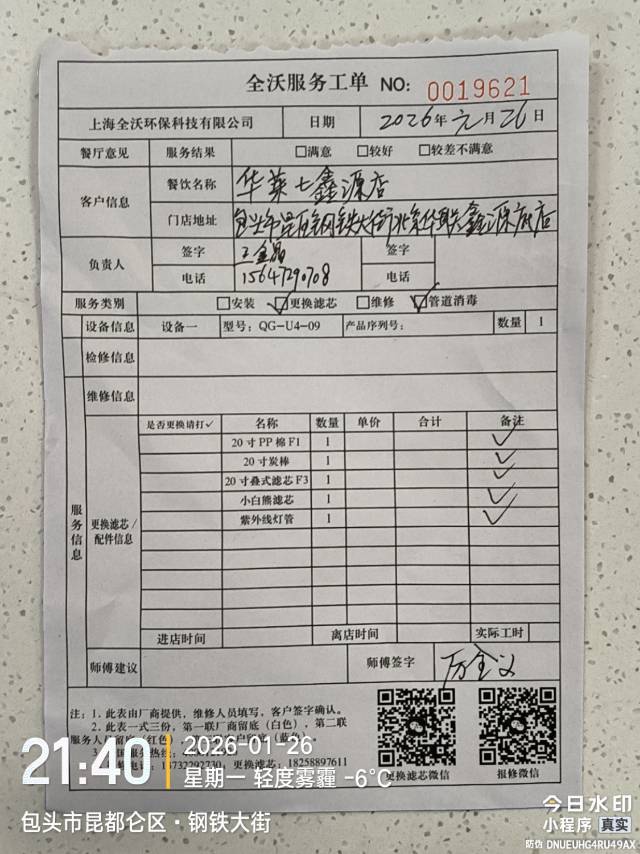 全沃服务工单 NO: 0019621
上海全沃环保科技有限公司 日期 2026年元月26日
餐厅意见 服务结果 □满意 □较好 □较差不满意
客户信息 餐饮名称 华莱七鑫源店
门店地址 包头市昆区钢铁大街 鑫源 店
负责人 签字 王 签字
电话 15647290708 电话
服务类别 □安装 ☑更换滤芯 □维修 ☑管道消毒
设备信息 设备一 型号: QG-U4-09 产品序列号: 数量 1
检修信息
维修信息
服务信息
更换滤芯/配件信息
是否更换请打✓ 名称 数量 单价 合计 备注
20寸PP棉F1 1 ✓
20寸炭棒 1 ✓
20寸叠式滤芯F3 1 ✓
小白熊滤芯 1 ✓
紫外线灯管 1 ✓
进店时间 离店时间 实际工时
师傅建议 师傅签字
注: 1. 此表由厂商提供，维修人员填写，客户签字确认。
2. 此表一式三份，第一联厂商留底（白色），第二联
服务人员留底（红色），
3.
13732292730，更换滤芯: 18258897611
更换滤芯微信 报修微信
21:40
2026-01-26
星期一 轻度雾霾 -6℃
包头市昆都仑区·钢铁大街
今日水印
小程序 真实
防伪 DNUEUHG4RU49AX